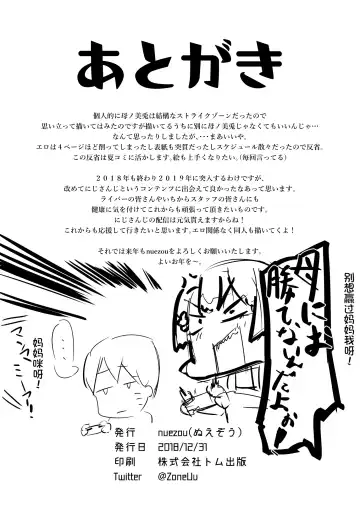 あとがき
個人的に母ノ美兎は結構なストライクゾーンだったので
思い立って描いてはみたのですが描いてるうちに別に母ノ美兎じゃなくてもいいんじゃ…
なんて思ったりしましたが、…まあいいや。
エロは4ページほど削ってしまったし表紙も突貫だったしスケジュール散々だったので反省。
この反省は夏コミに活かします。絵も上手くなりたい。(毎回言ってる)
2018年も終わり2019年に突入するわけですが、
改めてにじさんじというコンテンツに出会えて良かったなあって思います。
ライバーの皆さんやいちからスタッフの皆さんにも
健康に気を付けてこれからも頑張って頂きたいものです。
にじさんじの配信は元気貰えますからね!
これからも応援して行きたいと思います。エロ関係なく同人も描いてくよ!
それでは来年もnuezouをよろしくお願いいたします。
よいお年を〜。
母には
勝てないんだよお!
别想赢过妈妈我呀!
…
妈妈咪呀!
マンマミーア!
発行 nuezou(ぬえぞう)
発行日 2018/12/31
印刷 株式会社トム出版
Twitter @ZoneUu